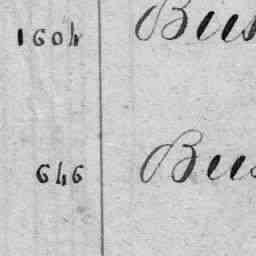 1604 Bus
646 Bus